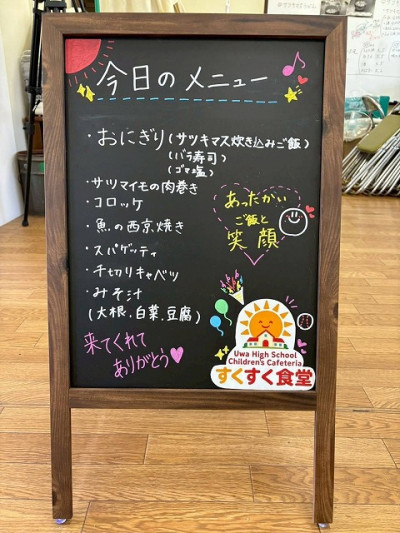 今日のメニュー
・おにぎり(サツキマス炊き込みご飯)
(バラ寿司)
(ゴマ塩)
・サツマイモの肉巻き
・コロッケ
・魚の西京焼き
・スパゲッティ
・千切りキャベツ
・みそ汁
(大根.白菜.豆腐)
あったかい
ご飯と
笑顔
来てくれて
ありがとう
Uwa High School
Children's Cafeteria
すくすく食堂